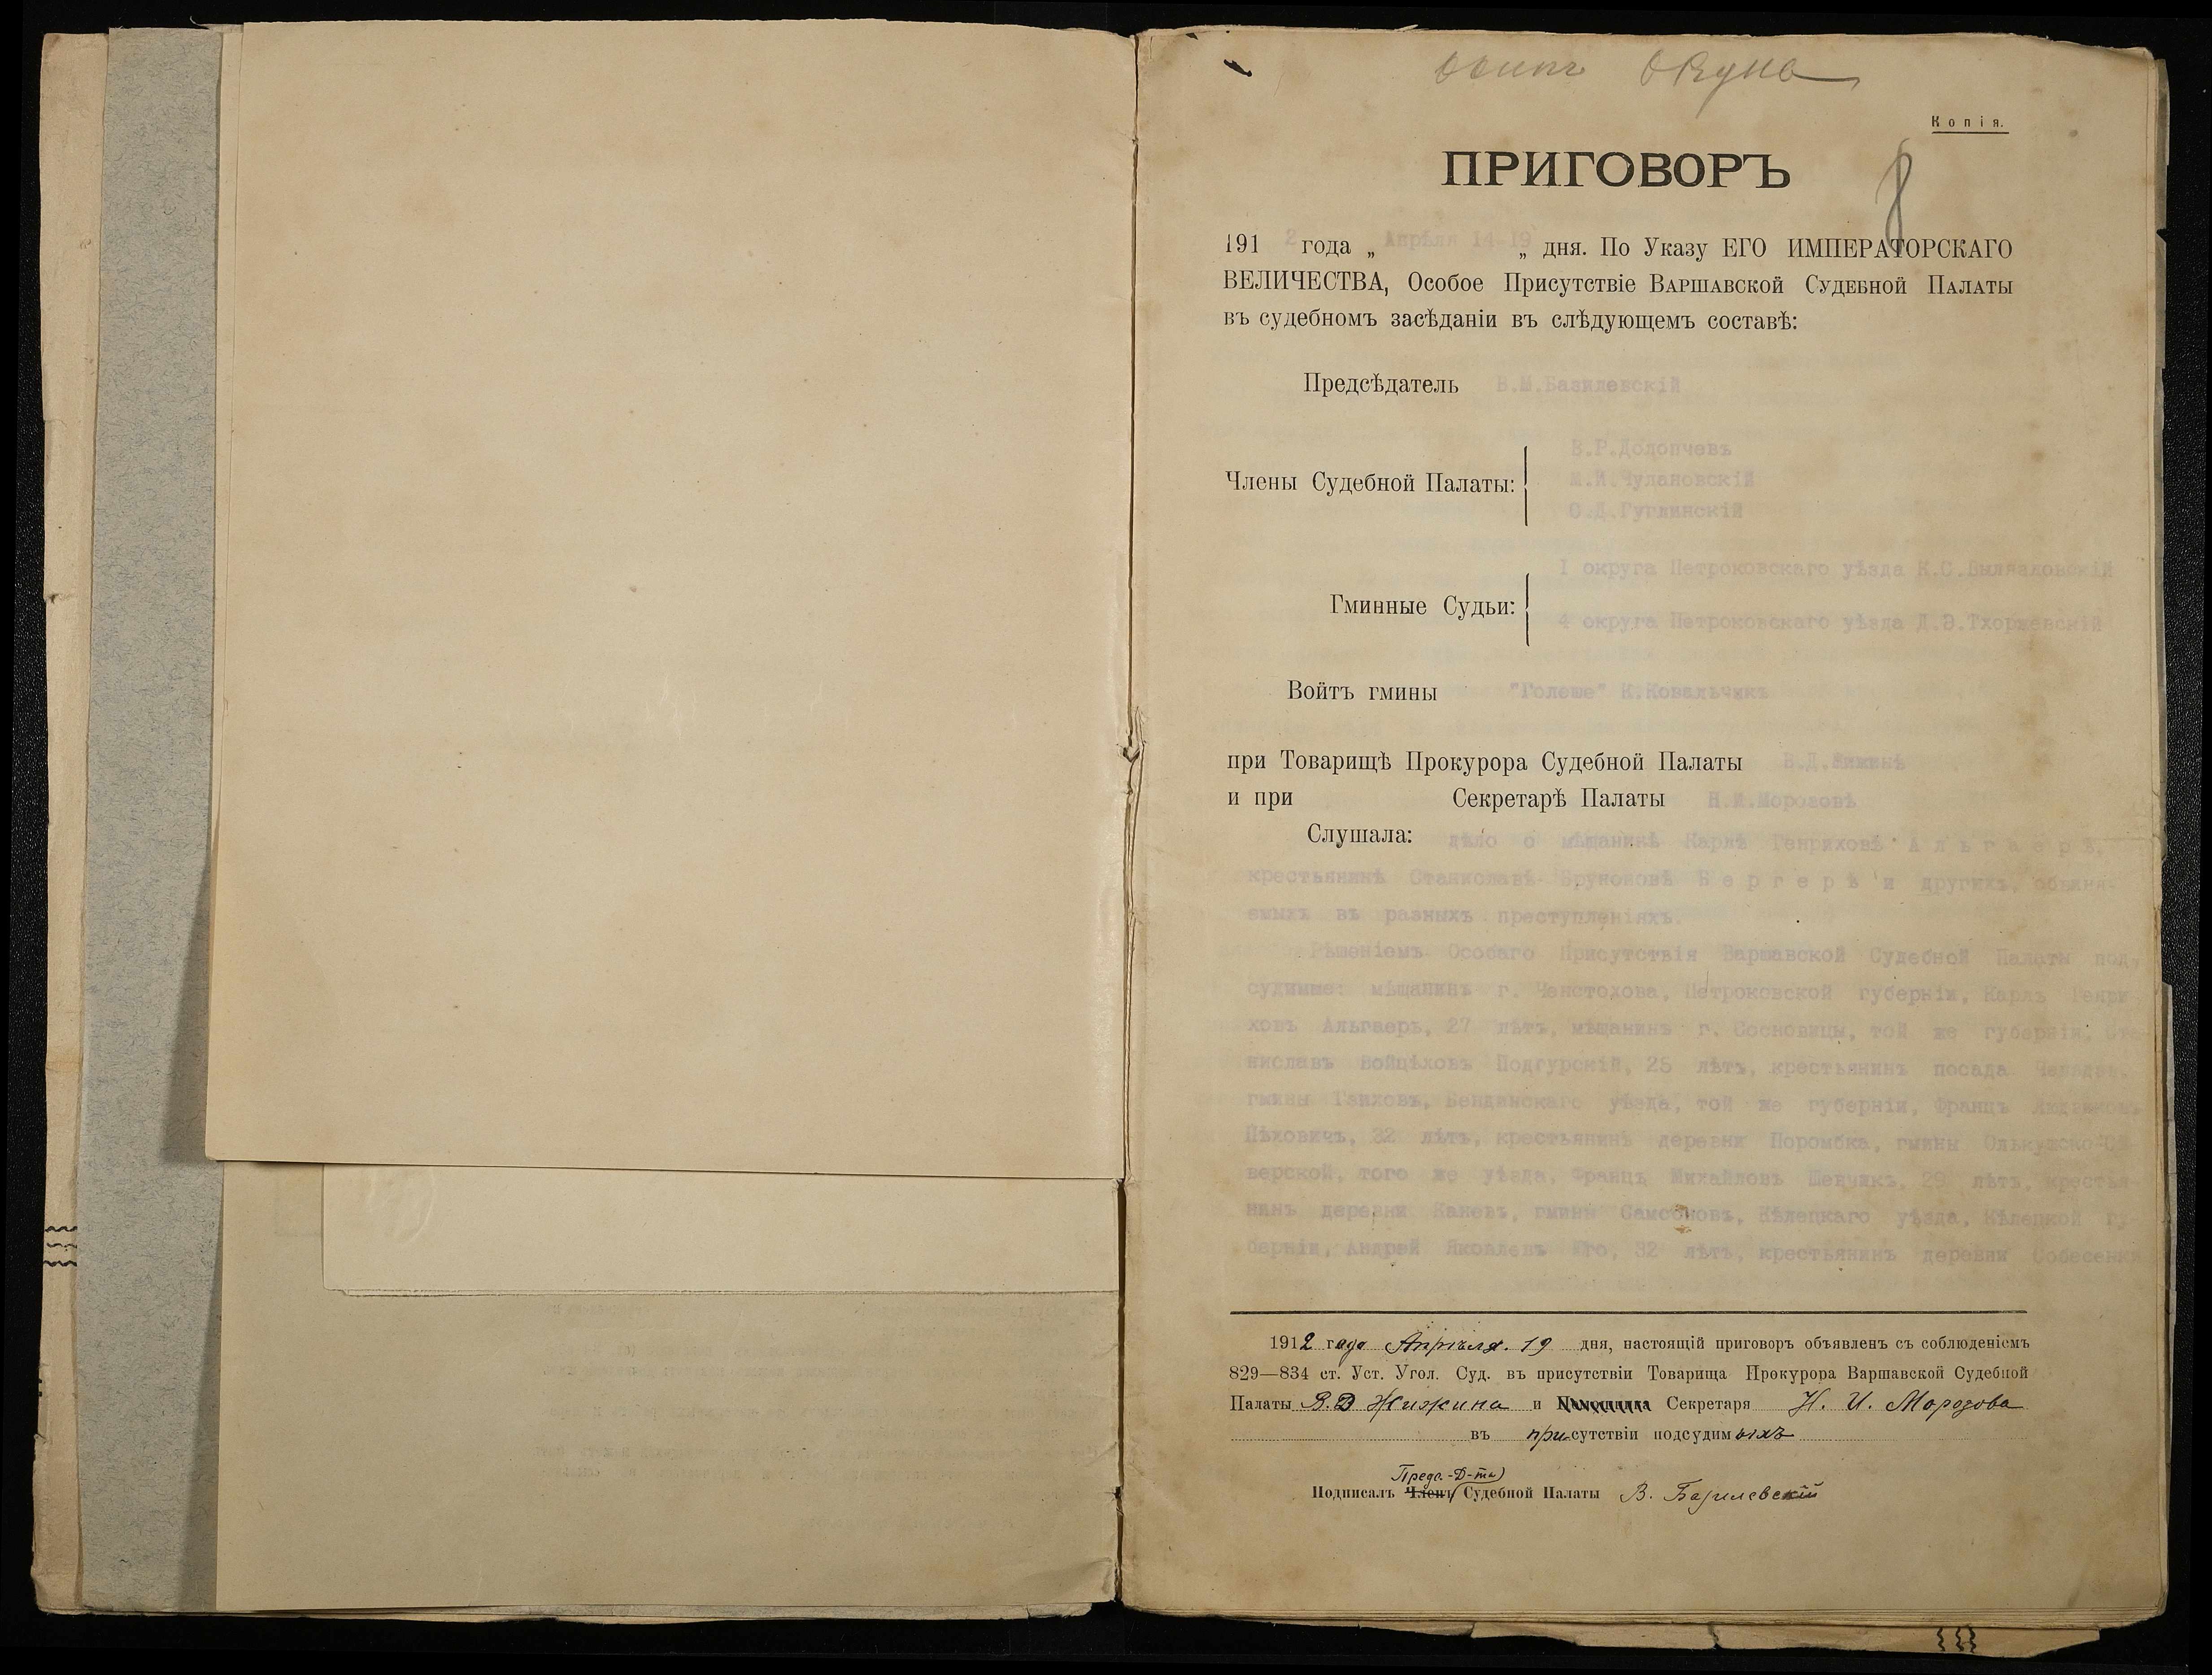 Копія.
ПРИГОВОРЪ
8
1912 года „ Апрѣля 14-19 „ дня. По Указу ЕГО ИМПЕРАТОРСКАГО
ВЕЛИЧЕСТВА, Особое Присутствіе Варшавской Судебной Палаты
въ судебномъ засѣданіи въ слѣдующемъ составѣ:
Предсѣдатель В.М.Базилевскій
В.Р.Долопчевъ
Члены Судебной Палаты: М.И.Чулановскій
О.Д.Гуглинскій
I округа Петроковскаго уѣзда К.С.
Гминные Судьи:
4 округа Петроковскаго уѣзда Д.Э.Тхоржевскій
Войтъ гмины "Голеше" К.Ковальчикъ
при Товарищѣ Прокурора Судебной Палаты В.Д.Жижинѣ
и при Секретарѣ Палаты Н.И.Морозовѣ
Слушала: дѣло о мѣщанинѣ Карлѣ Генриховѣ Альгаерѣ,
крестьянинѣ Станиславѣ Бруноновѣ Бергерѣ и другихъ, обвиня-
емыхъ въ разныхъ преступленіяхъ.
Рѣшеніемъ Особаго Присутствія Варшавской Судебной Палаты под-
судимые: мѣщанинъ г. Ченстохова, Петроковской губерніи, Карлъ Генри
ховъ Альгаеръ, 27 лѣтъ, мѣщанинъ г. Сосновицы, той же губерніи, Ста
ниславъ Войцѣховъ Подгурскій, 25 лѣтъ, крестьянинъ посада Челядзь,
гмины Гзиховъ, Бендинскаго уѣзда, той же губерніи, Францъ
Пѣховичъ, 32 лѣтъ, крестьянинъ деревни Поромбка, гмины Олькушско-Сѣ
верской, того же уѣзда, Францъ Михайловъ Шевчикъ, 29 лѣтъ, крестья-
нинъ деревни Каневъ, гмины Самсоновъ, Кѣлецкаго уѣзда, Кѣлецкой гу-
берніи, Андрей Яковлевъ 32 лѣтъ, крестьянинъ деревни
1912 года Апрѣля 19 дня, настоящій приговоръ объявленъ съ соблюденіемъ
829—834 ст. Уст. Угол. Суд. въ присутствіи Товарища Прокурора Варшавской Судебной
Палаты В.Д Жижина и Помощника Секретаря Н. И. Морозова
въ присутствіи подсудимыхъ
Предс-Д-та
Подписалъ Членъ Судебной Палаты В. Базилевскій